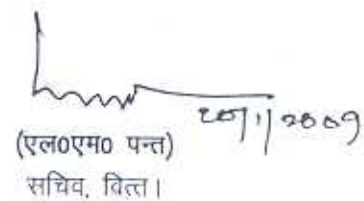 20/1/2009
(एल0एम0 पन्त)
सचिव, वित्त।